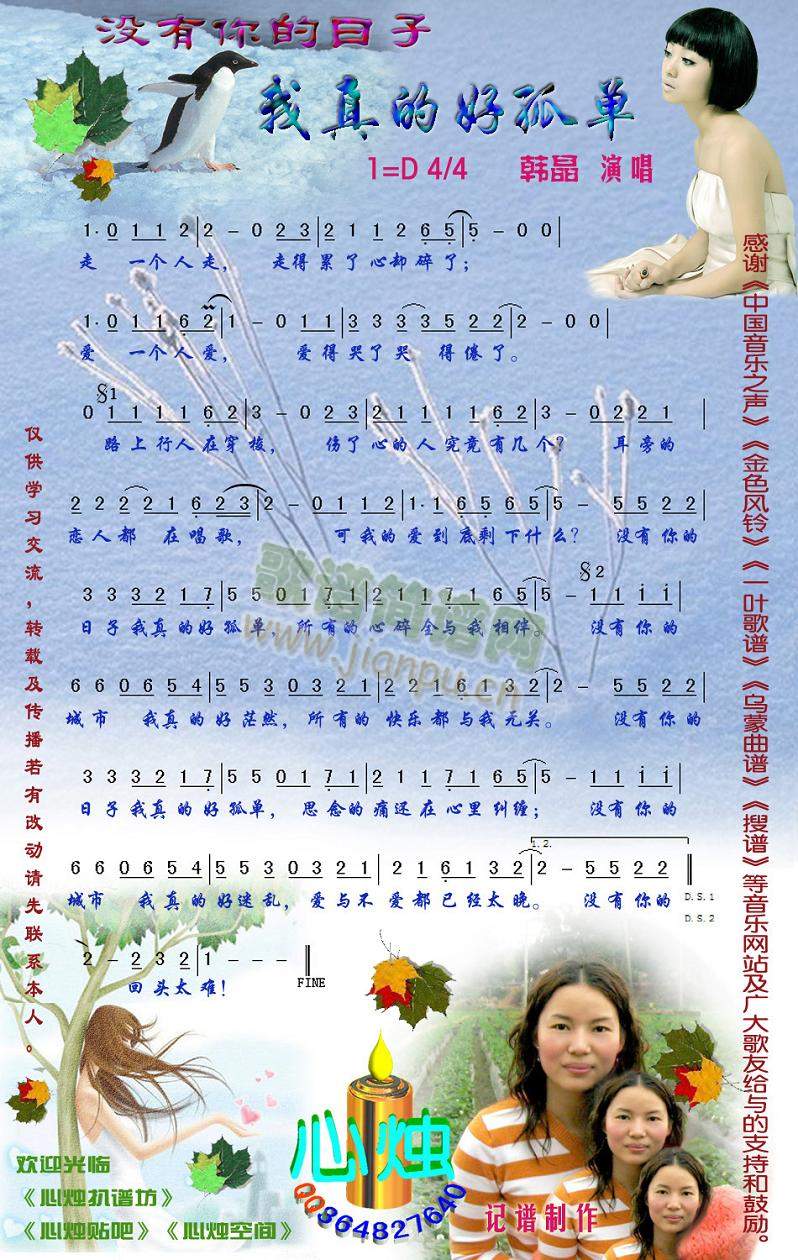 没有你的日子
我真的好孤单
1=D 4/4 韩晶 演唱
1· 0 1 1 2 | 2 - 0 2 3 | 2 1 1 2 6 5 | 5 - 0 0 |
走 一个人走， 走得累了心却碎了；
1· 0 1 1 6 2 | 1 - 0 1 1 | 3 3 3 3 5 2 2 | 2 - 0 0 |
爱 一个人爱， 爱得哭了哭 得倦了。
𝄋1
0 1 1 1 1 6 2 | 3 - 0 2 3 | 2 1 1 1 1 6 2 | 3 - 0 2 2 1 |
路上行人在穿梭， 伤了心的人究竟有几个？ 耳旁的
2 2 2 2 1 6 2 3 | 2 - 0 1 1 2 | 1· 1 6 5 6 5 | 5 - 5 5 2 2
恋人都 在唱歌， 可我的爱到底剩下什么？ 没有你的
𝄋2
3 3 3 2 1 7 | 5 5 0 1 7 1 | 2 1 1 7 1 6 5 | 5 - 1 1 i i |
日子我真的好孤单，所有的心碎全与我相伴。 没有你的
6 6 0 6 5 4 | 5 5 3 0 3 2 1 | 2 2 1 6 1 3 2 | 2 - 5 5 2 2 |
城市 我真的好茫然，所有的快乐都与我无关。 没有你的
3 3 3 2 1 7 | 5 5 0 1 7 1 | 2 1 1 7 1 6 5 | 5 - 1 1 i i |
日子我真的好孤单， 思念的痛还在心里纠缠； 没有你的
1. 2.
6 6 0 6 5 4 | 5 5 3 0 3 2 1 | 2 1 6 1 3 2 | 2 - 5 5 2 2 ‖
城市 我真的好迷乱，爱与不爱都已经太晚。 没有你的
D.S.1
D.S.2
2 - 2 3 2 | 1 - - - ‖
回头太难！
FINE
仅供学习交流，转载及传播若有改动请先联系本人。
感谢《中国音乐之声》《金色风铃》《一叶歌谱》《乌蒙曲谱》《搜谱》等音乐网站及广大歌友给与的支持和鼓励。
歌谱简谱网
www.jianpu.cn
欢迎光临
《心烛扒谱坊》
《心烛贴吧》《心烛空间》
心烛
QQ364827640
记谱制作